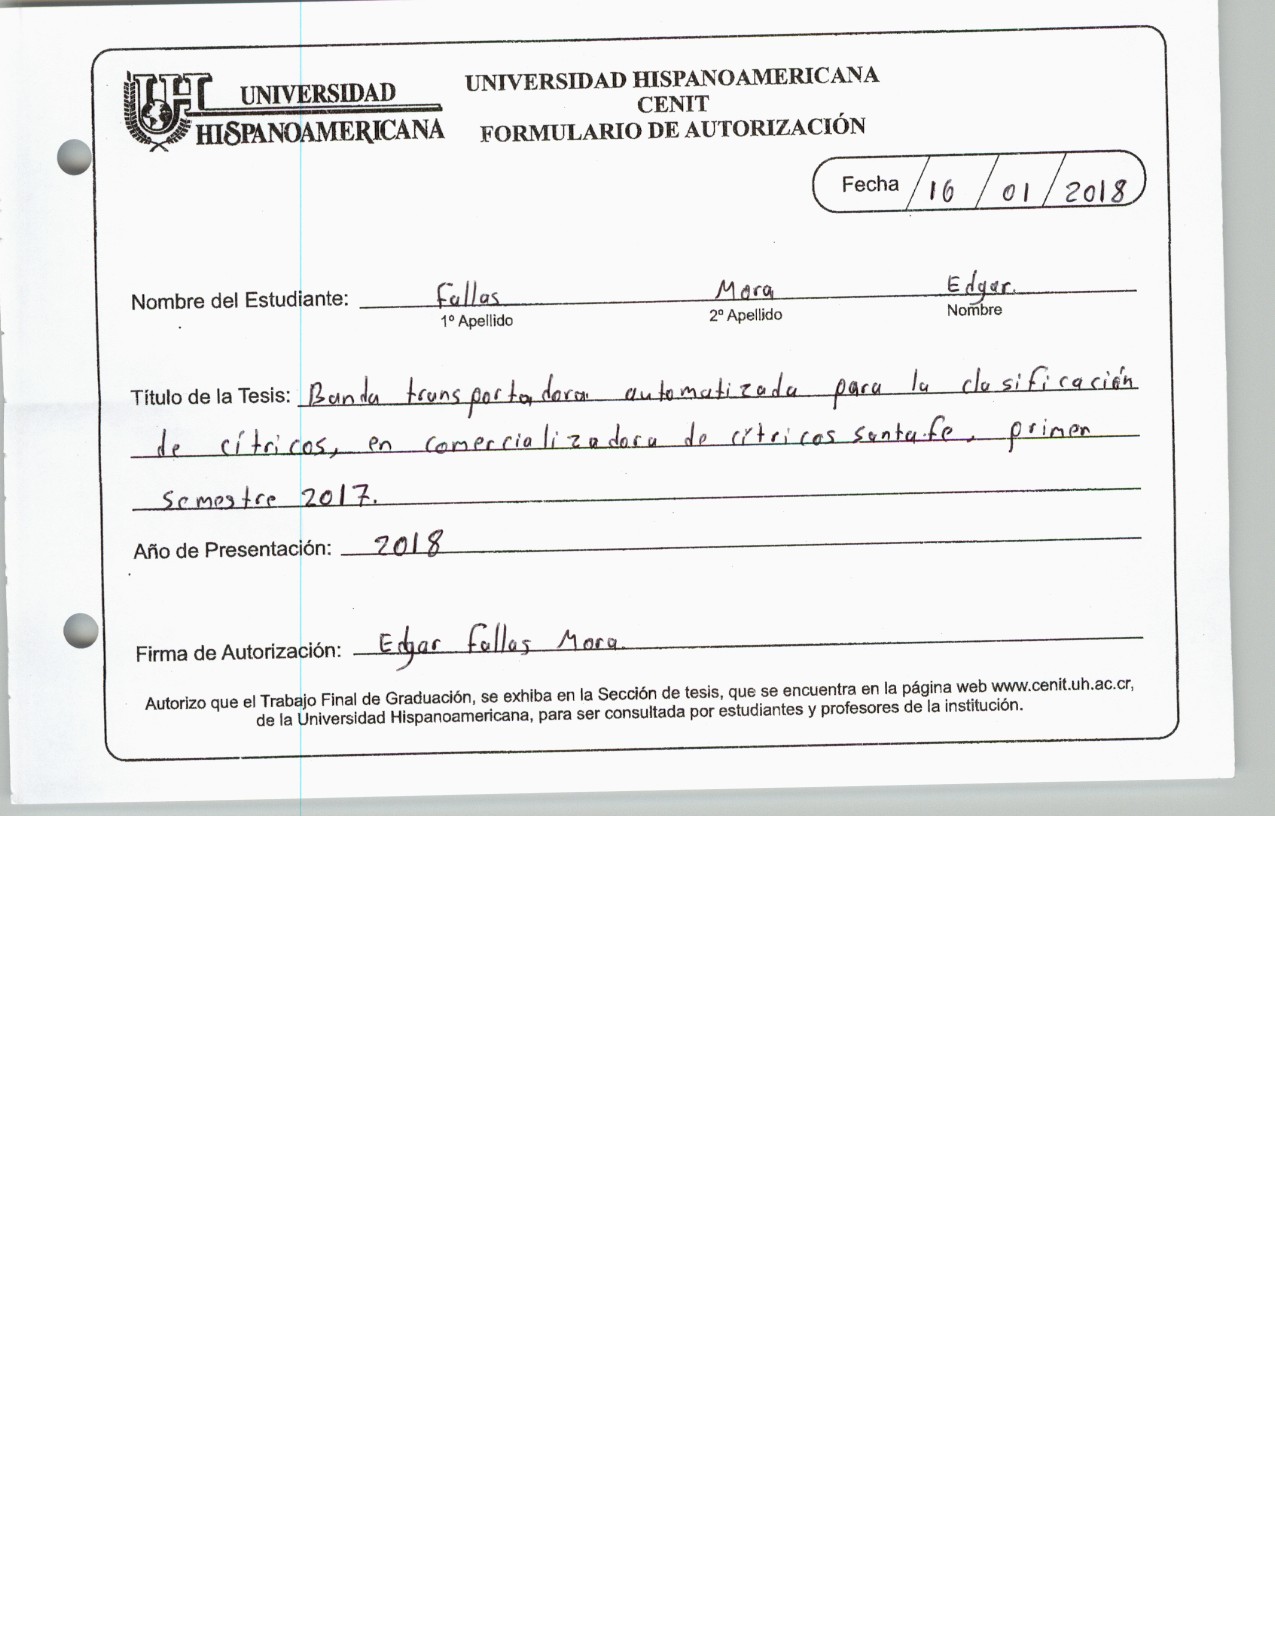 UNIVERSIDAD
HISPANOAMERICANA
UNIVERSIDAD HISPANOAMERICANA
CENIT
FORMULARIO DE AUTORIZACIÓN
Fecha / 16 / 01 / 2018
Nombre del Estudiante: Fallas Mora Edgar.
1º Apellido 2º Apellido Nombre
Título de la Tesis: Banda transportadora automatizada para la clasificación
de cítricos, en comercializadora de cítricos santa fe, primer
semestre 2017.
Año de Presentación: 2018
Firma de Autorización: Edgar Fallas Mora.
Autorizo que el Trabajo Final de Graduación, se exhiba en la Sección de tesis, que se encuentra en la página web www.cenit.uh.ac.cr,
de la Universidad Hispanoamericana, para ser consultada por estudiantes y profesores de la institución.